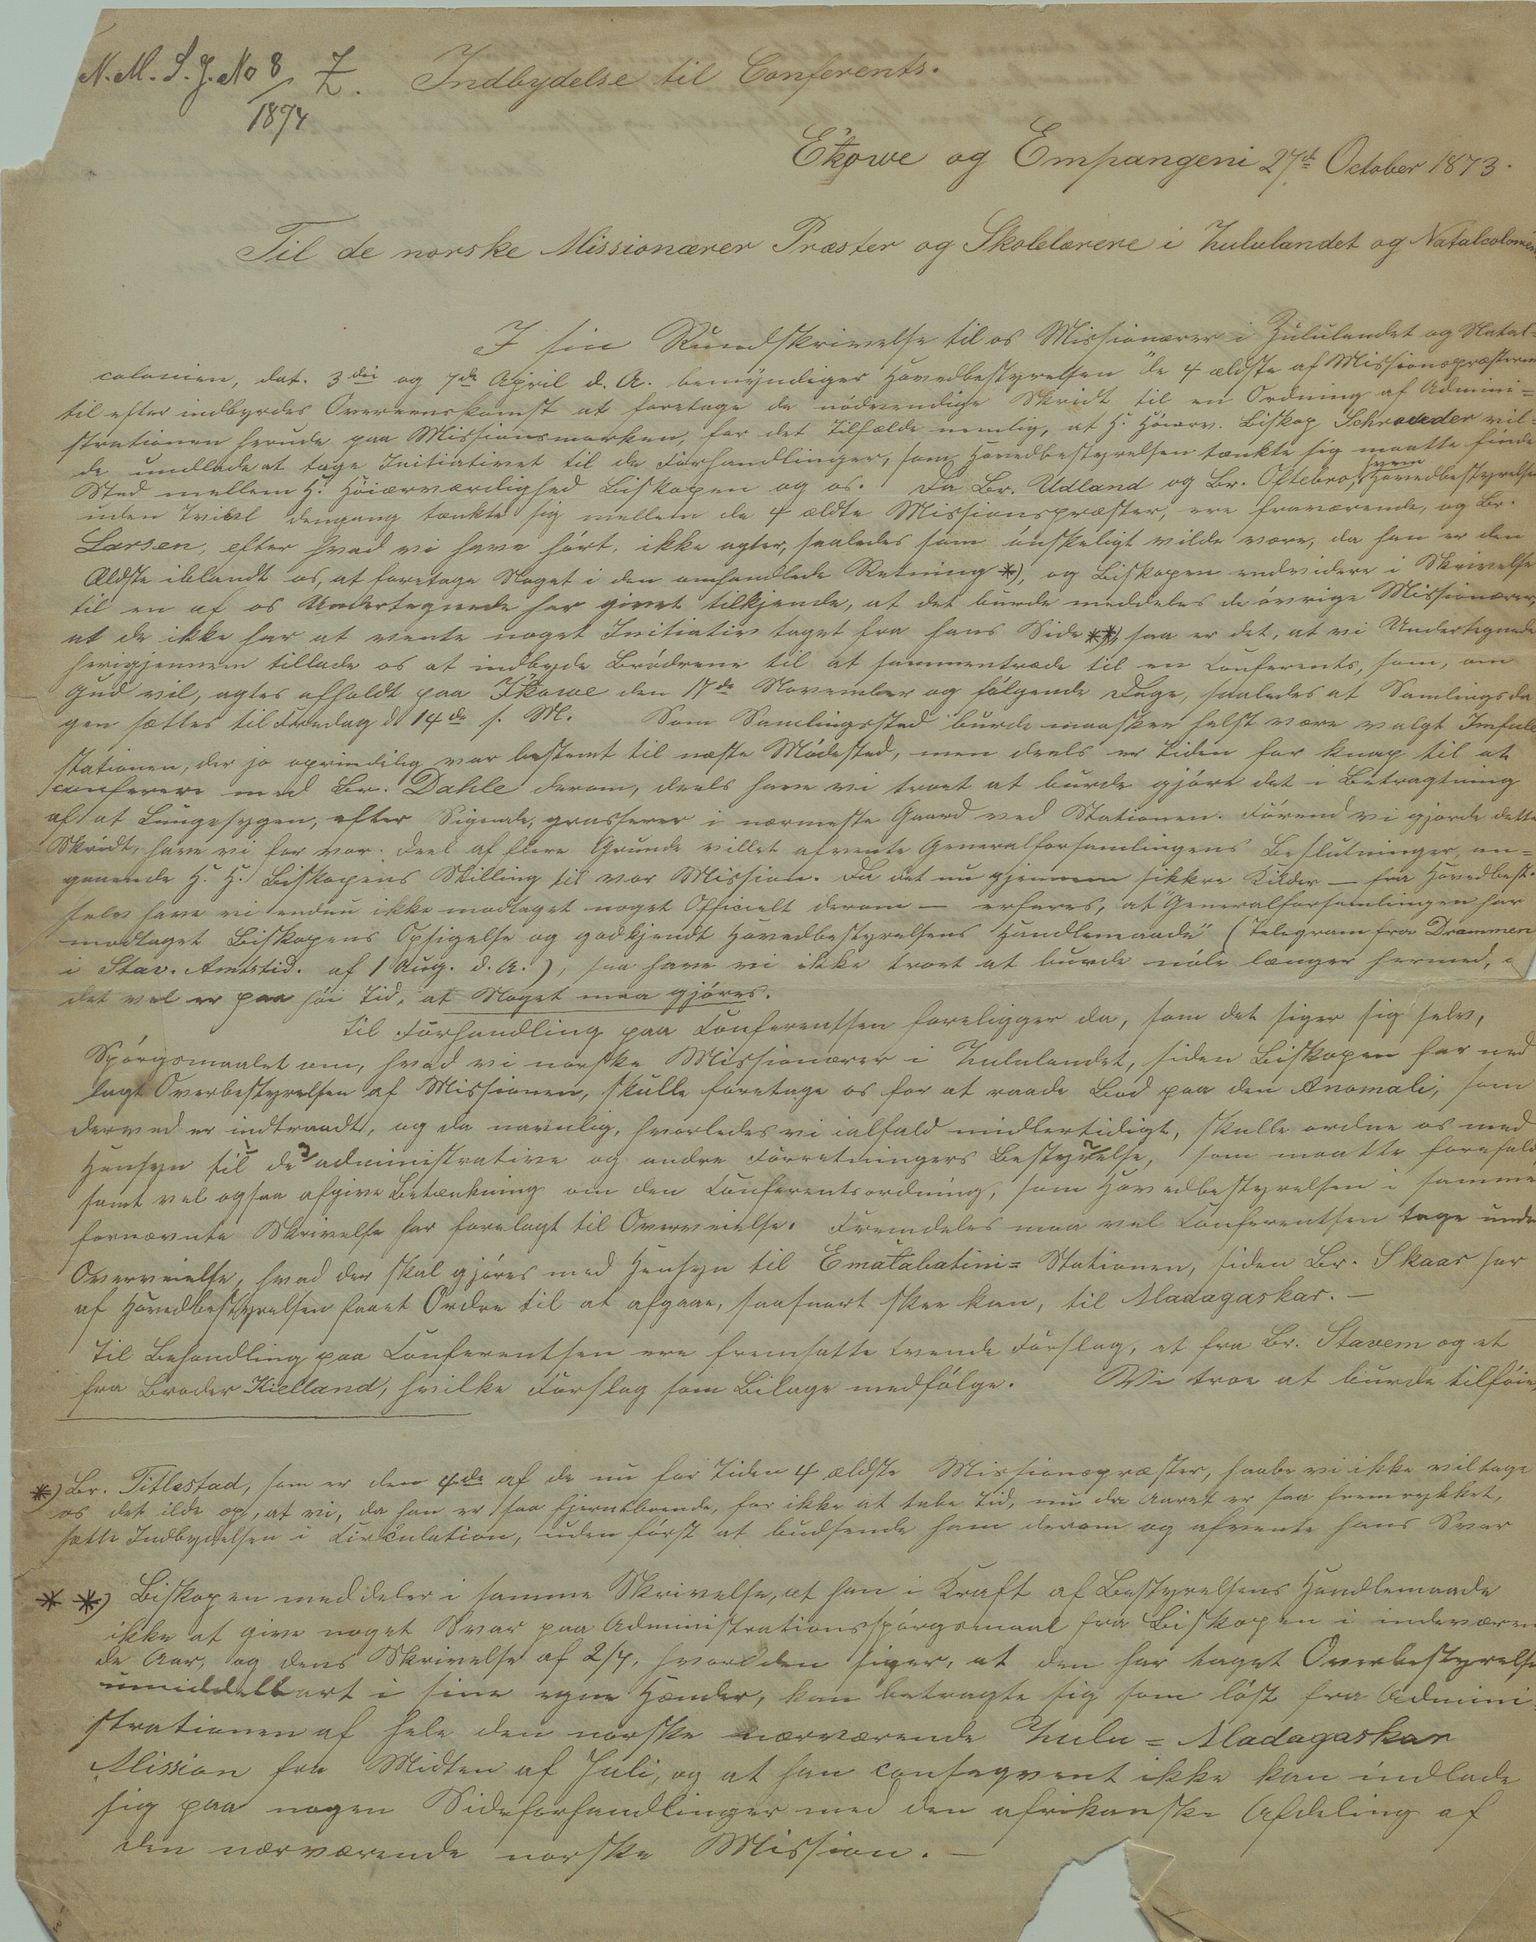 N. M. S. J. No 8/1874 Z.
Indbydelse til Conferents.
Ekowe og Empangeni 27de October 1873.
Til de norske Missionærer Præster og Skolelærere i Zululandet og Natalcolonien
I sin Rundskrivelse til os Missionærer i Zululandet og Natal-
colonien, dat. 3die og 7de April d. A. bemyndiger Hovedbestyrelsen "de 4 ældste af Missionspræsterne
til efter indbyrdes Overeenskomst at foretage de nødvendige Skridt til en Ordning af Admini=
strationen herude paa Missionsmarken, for det Tilfælde nemlig, at H. Höiærv. Biskop Schreuder vil-
de undlade at tage Initiativet til de Forhandlinger, som Hovedbestyrelsen tænkte sig maatte finde
Sted mellem H. Höiærværdighed Biskopen og os. Da Br. Udland og Br. Oftebro, hvem Hovedbestyrelsen
uden Tvivl dengang tænkte sig mellem de 4 ældte Missionspræster, ere fraværende, og Br.
Larsen, efter hvad vi have hört, ikke agter, saaledes som önskeligt vilde være, da han er den
Ældste iblandt os, at foretage Noget i den omhandlede Retning *), og Biskopen endvidere i Skrivelse
til en af os Undertegnede har givet tilkjende, at det burde meddeles de övrige Missionærer,
at de ikke har at vente noget Initiativ taget fra hans Side **), saa er det, at vi Undertegnede
herigjennem tillade os at indbyde Brödrene til at sammentræde til en Conferents, som, om
Gud vil, agtes afholdt paa Ikowe den 17de November og fölgende Dage, saaledes at Samlingsda
gen sættes til Fredag d. 14de f. M. Som Samlingssted burde maaskee helst være valgt Imfule
stationen, der jo oprindelig var bestemt til næste Mödested, men deels er Tiden for knap til at
conferere med Br. Dahle derom, deels have vi troet at burde gjöre det i Betragtning
af at Lungesygen, efter Sigende, grasserer i nærmeste Gaard ved Stationen. Förend vi gjorde dette
Skridt, have vi for vor Deel af flere Grunde villet afvente Generalforsamlingens Beslutninger, an=
gaaende H. H. Biskopens Stilling til vor Mission. Da det nu gjennem sikkre Kilder — fra Hovedbest.
selv have vi endnu ikke modtaget noget Officielt derom — erfares, at "Generalforsamlingen har
modtaget Biskopens Opsigelse og godkjendt Hovedbestyrelsens Handlemaade" (Telegram fra Drammen
i Stav. Amtstid. af 1 Aug. d. A.), saa have vi ikke troet at burde nöle længer hermed,
det vel er paa höi Tid, at Noget maa gjöres.
Til Forhandling paa Conferentsen foreligger da, som det siger sig selv,
Spörgsmaalet om, hvad vi norske Missionærer i Zululandet, siden Biskopen har ned
lagt Overbestyrelsen af Missionen, skulle foretage os for at raade Bod paa den Anomali, som
derved er indtraadt, og da navnlig, hvorledes vi ialfald midlertidigt, skulle ordne os med
Hensyn til de administrative og andre Forretningers Bestyrelse, som maatte forefald
samt vel ogsaa afgive Betænkning om den Conferentsordning, som Hovedbestyrelsen i samme
fornævnte Skrivelse har forelagt til Overveielse. Fremdeles maa vel Conferentsen tage under
Overveielse, hvad der skal gjöres med Hensyn til Ematabatini= Stationen, siden Br. Skaar har
af Hovedbestyrelsen faaet Ordre til at afgaae, saasnart skee kan, til Madagaskar. —
Til Behandling paa Conferentsen ere fremsatte tvende Forslag, et fra Br. Stavem og et
fra Broder Kielland, hvilke Forslag som Bilage medfölge. Vi troe at burde tilföie,
*) Br. Titlestad, som er den 4de af de nu for Tiden 4 ældste Missionspræster, haabe vi ikke vil tage
os det ilde op, at vi, da han er saa fjerntboende, for ikke at tabe Tid, nu da Aaret er saa fremrykket,
sætte Indbydelsen i Circulation, uden först at budsende ham derom og afvente hans Svar
**) Biskopen meddeler i samme Skrivelse, at han i Kraft af Bestyrelsens Handlemaade
ikke at give noget Svar paa Administrationsspörgsmaal fra Biskopen i indeværen
de Aar, og dens Skrivelse af 2/4, hvori den siger, at den har taget Overbestyrelse
umiddelbart i sine egne Hænder, kan betragte sig som löst fra Admini-
strationen af hele den norske nærværende Zulu= Madagaskar
Mission fra Midten af Juli, og at han conseqvent ikke kan indlade
sig paa nogen Sideforhandlinger med den afrikanske Afdeling af
den nærværende norske Mission. —